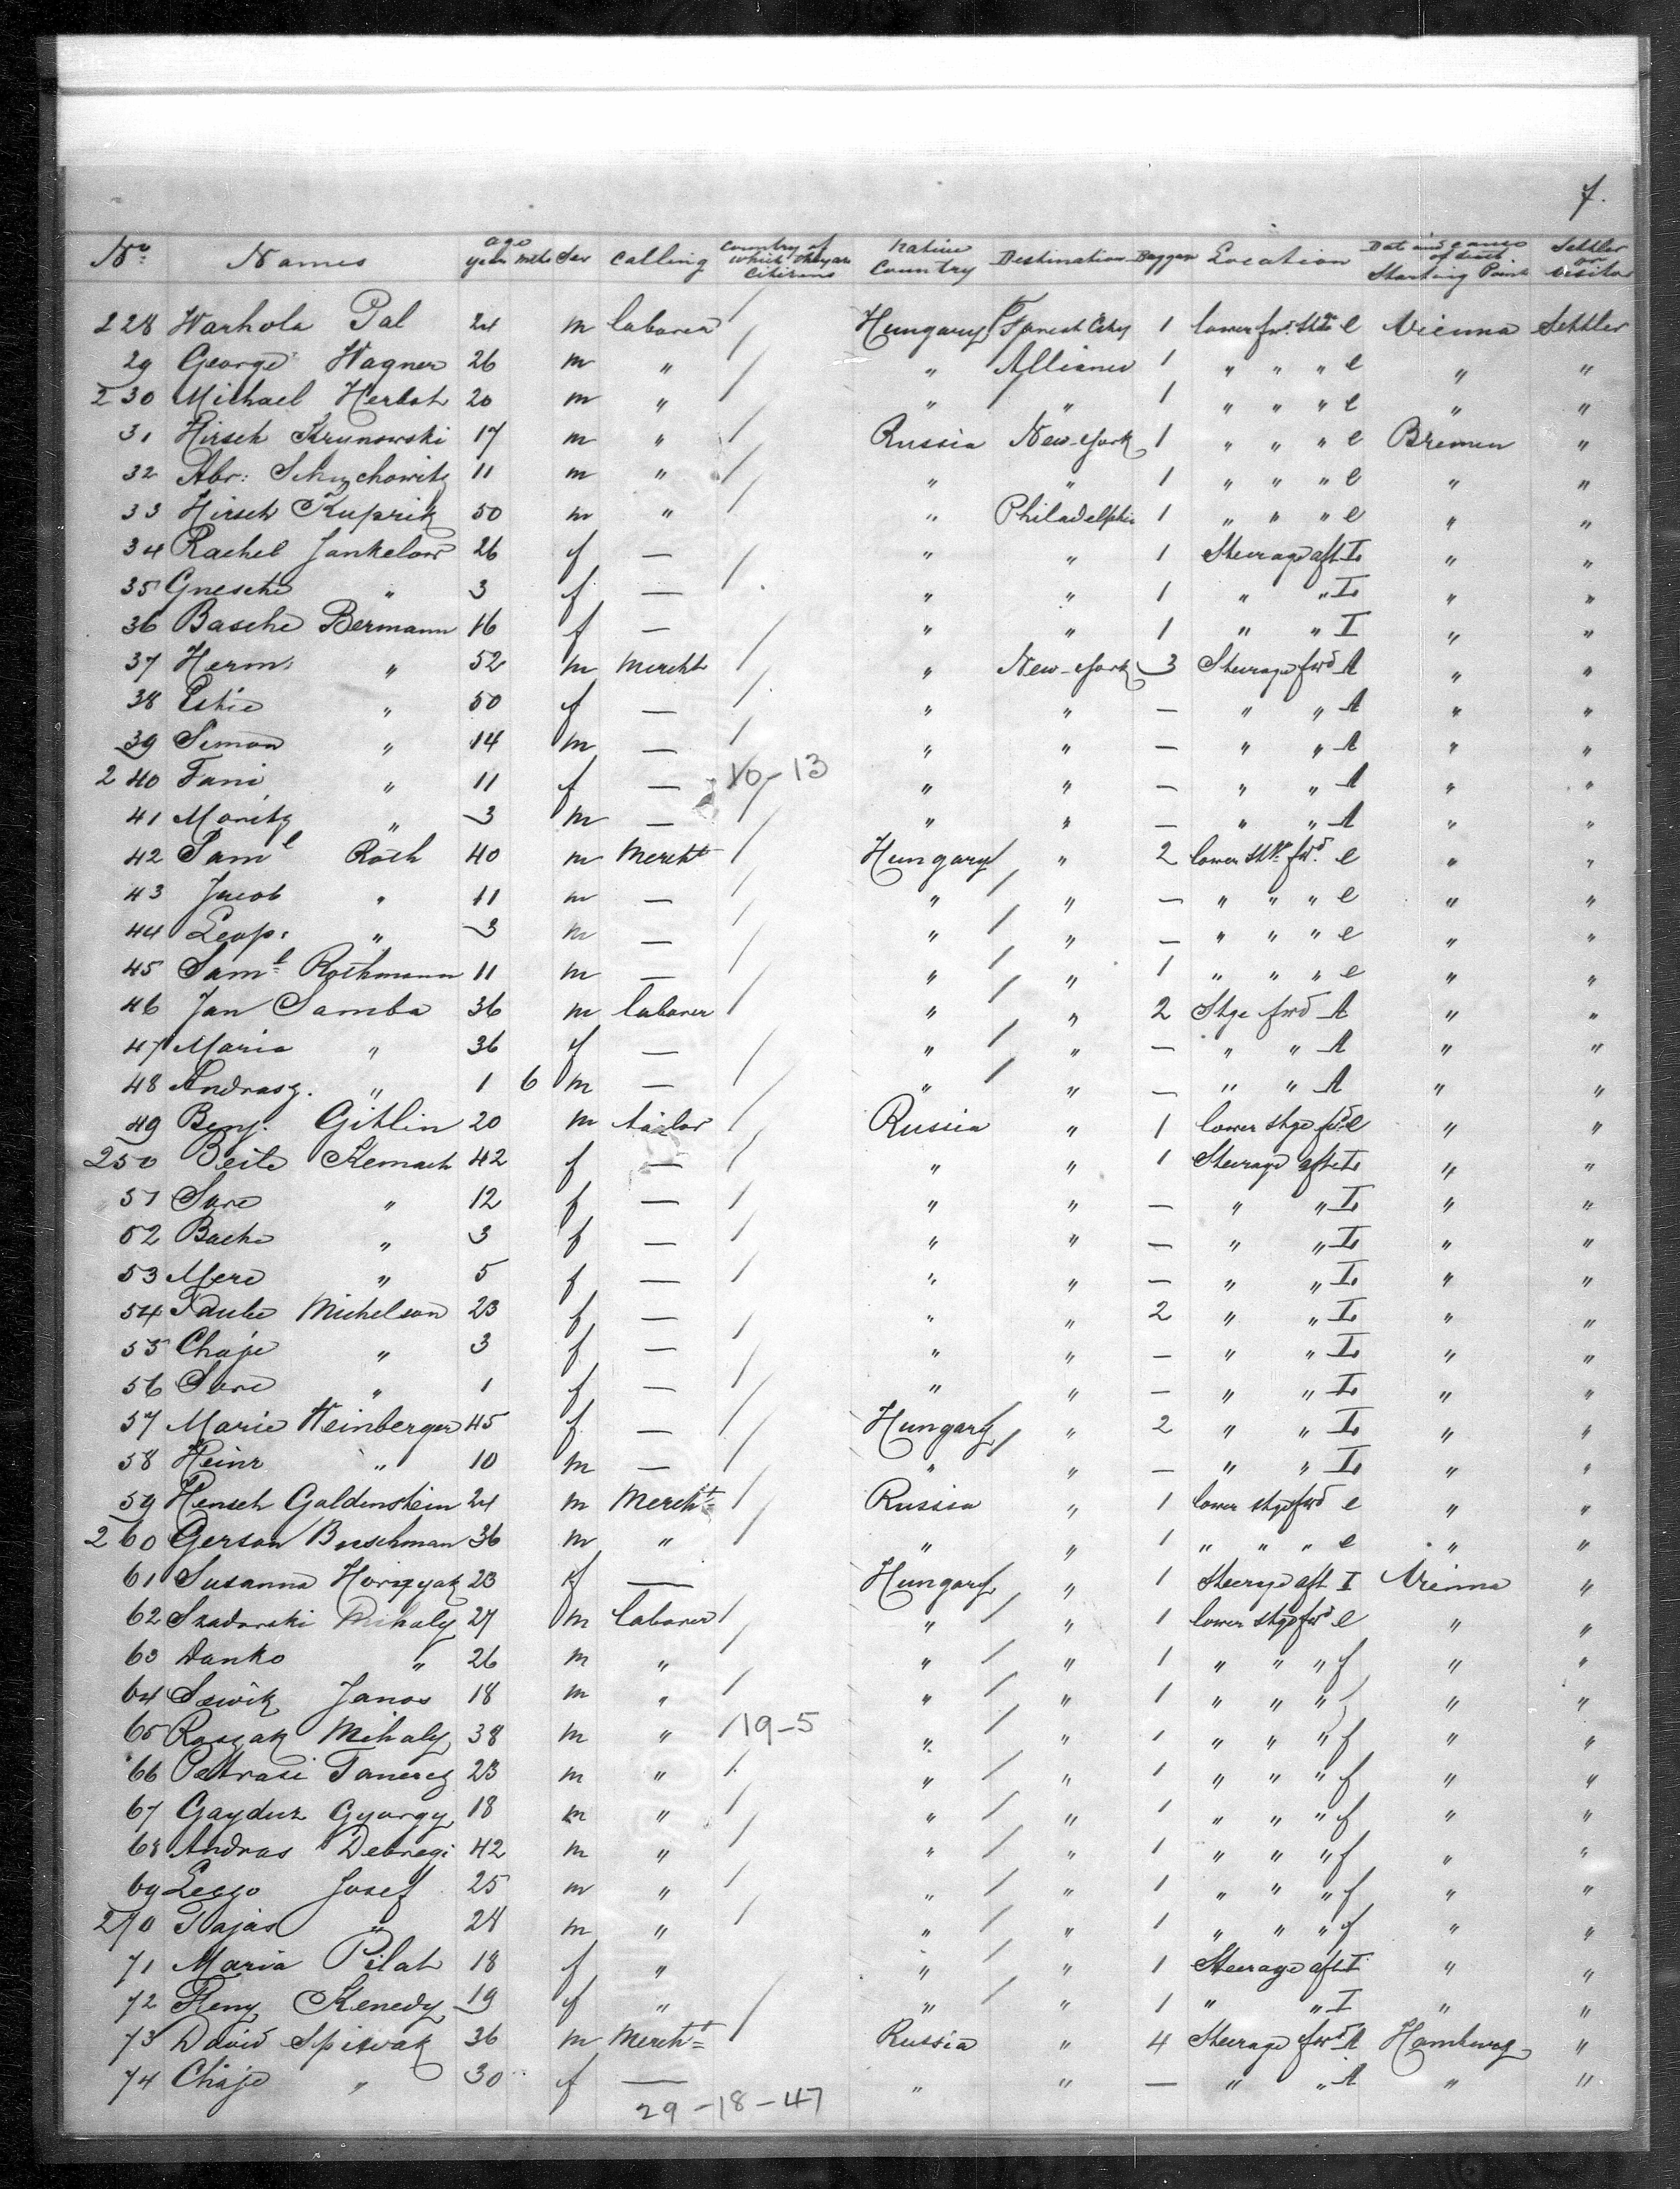 7.
No. Names age year mths Sex Calling Country of which they are Citizens Native Country Destination Baggage Location Date and cause of death Starting Point Settler or visitor
228 Warhola Pal 24 m laborer / Hungary Forest City 1 lower fwd e Vienna Settler
29 George Wagner 26 m " / " 1 " " " e " "
230 Michael Herbst 20 m " / " " 1 " " " e " "
31 Hirsch Krunowski 17 m " / Russia New-York 1 " " " e Bremen "
32 Abr: 11 m " / " " 1 " " " e " "
33 Hirsch Kuprik 50 m " / " Philadelphia 1 " " " e " "
34 Rachel Jankelow 26 f — / " " 1 Steerage aft I " "
35 Gnesche " 3 f — / " " 1 " " I " "
36 Basche Bermann 16 f — / " " 1 " " I " "
37 Herm: " 52 m Mercht / " New-York 3 Steerage fwd A " "
38 Estie " 50 f — / " " — " " A " "
39 Simon " 14 m — / " " — " " A " "
240 Fani " 11 f — 10-13 " " — " " A " "
41 Moritz " 3 m — / " " — " " A " "
42 Saml Roth 40 m Mercht / Hungary " 2 lower fwd e " "
43 Jacob " 11 m — / " / " — " " " e " "
44 Leop: " 3 m — / " / " — " " " e " "
45 Saml Rothmann 11 m — / " / " 1 " " " e " "
46 Jan Samba 36 m laborer / " / " 2 Stge fwd A " "
47 Maria " 36 f — / " / " — " " A " "
48 Andrasz. " 1 6 m — / " / " — " " A " "
49 Benj. Gitlin 20 m tailor / Russia " 1 lower stge fwd e " "
250 Beile Kemach 42 f — / " " 1 Steerage aft I " "
51 Sare " 12 f — / " " — " " I " "
52 Bache " 3 f — / " " — " " I " "
53 Mere " 5 f — / " " — " " I " "
54 Taube Michelson 23 f — / " " 2 " " I " "
55 Chaje " 3 f — / " " — " " I " "
56 Sare " 1 f — / " " — " " I " "
57 Marie Weinberger 45 f — / Hungary / " 2 " " I " "
58 Heinr " 10 m — / " / " — " " I " "
59 Hensch Goldenstein 24 m Mercht / Russia " 1 lower stge fwd e " "
260 Gerson Buschman 36 m " / " " 1 " " " e " "
61 Susanna 23 f — Hungary " 1 Steerage aft I Vienna "
62 Mihaly 27 m laborer / " / " 1 lower stge fwd e " "
63 Danko " 26 m " / " / " 1 " " " f " "
64 Janos 18 m " / " / " 1 " " " " "
65 Roszak Mihaly 38 m " / 19-5 " / " 1 " " " f " "
66 Petrasi 23 m " / " / " 1 " " " f " "
67 Gaydur Gyorgy 18 m " / " / " 1 " " " f " "
68 Andras 42 m " / " / " 1 " " " f " "
69 Josef 25 m " / " / " 1 " " " f " "
270 " m " / " / " 1 " " " f " "
71 Maria Pilat 18 f " " / " 1 Steerage aft I " "
72 Kenedy 19 f " " / " 1 " " I " "
73 David Spiwak 36 m Mercht / Russia " 4 Steerage fwd A Hamburg "
74 Chaje " 30 f — " " — " " A " "
29-18-47